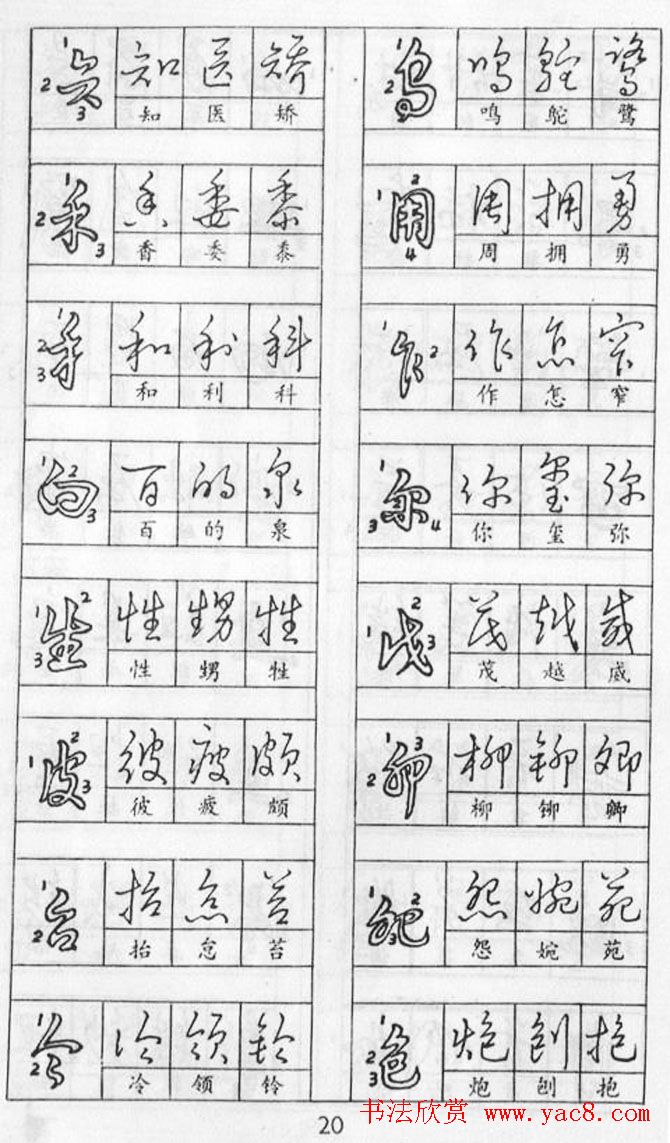 1 2 3 矢 知 医 矫
知 医 矫
1 2 3 禾 香 委 黍
香 委 黍
2 3 禾 和 利 科
和 利 科
1 2 3 白 百 的 泉
百 的 泉
1 2 3 生 性 甥 牲
性 甥 牲
1 2 3 皮 彼 疲 颇
彼 疲 颇
1 2 台 抬 怠 苔
抬 怠 苔
1 2 令 冷 领 铃
冷 领 铃
1 2 鸟 鸣 鸵 鹭
鸣 鸵 鹭
1 2 4 用 周 拥 勇
周 拥 勇
1 2 乍 作 怎 窄
作 怎 窄
1 2 3 4 尔 你 玺 弥
你 玺 弥
1 2 3 戊 茂 越 威
茂 越 威
1 2 3 卯 柳 铆 卿
柳 铆 卿
1 2 3 夗 怨 婉 苑
怨 婉 苑
1 2 3 包 炮 刨 抱
炮 刨 抱
20
书法欣赏 www.yac8.com